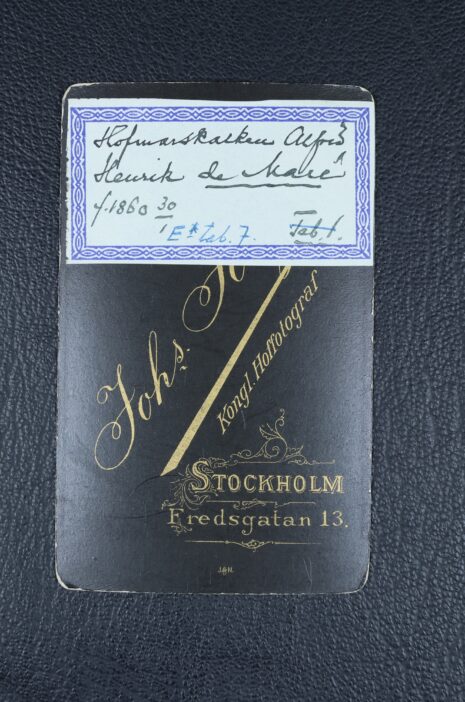 Hofmarskalken Alfred
Henrik de Maré
f. 1860 30/1
E* tab. 7. Tab. 1.
Johs.
Kongl. Hoffotograf
STOCKHOLM
Fredsgatan 13.